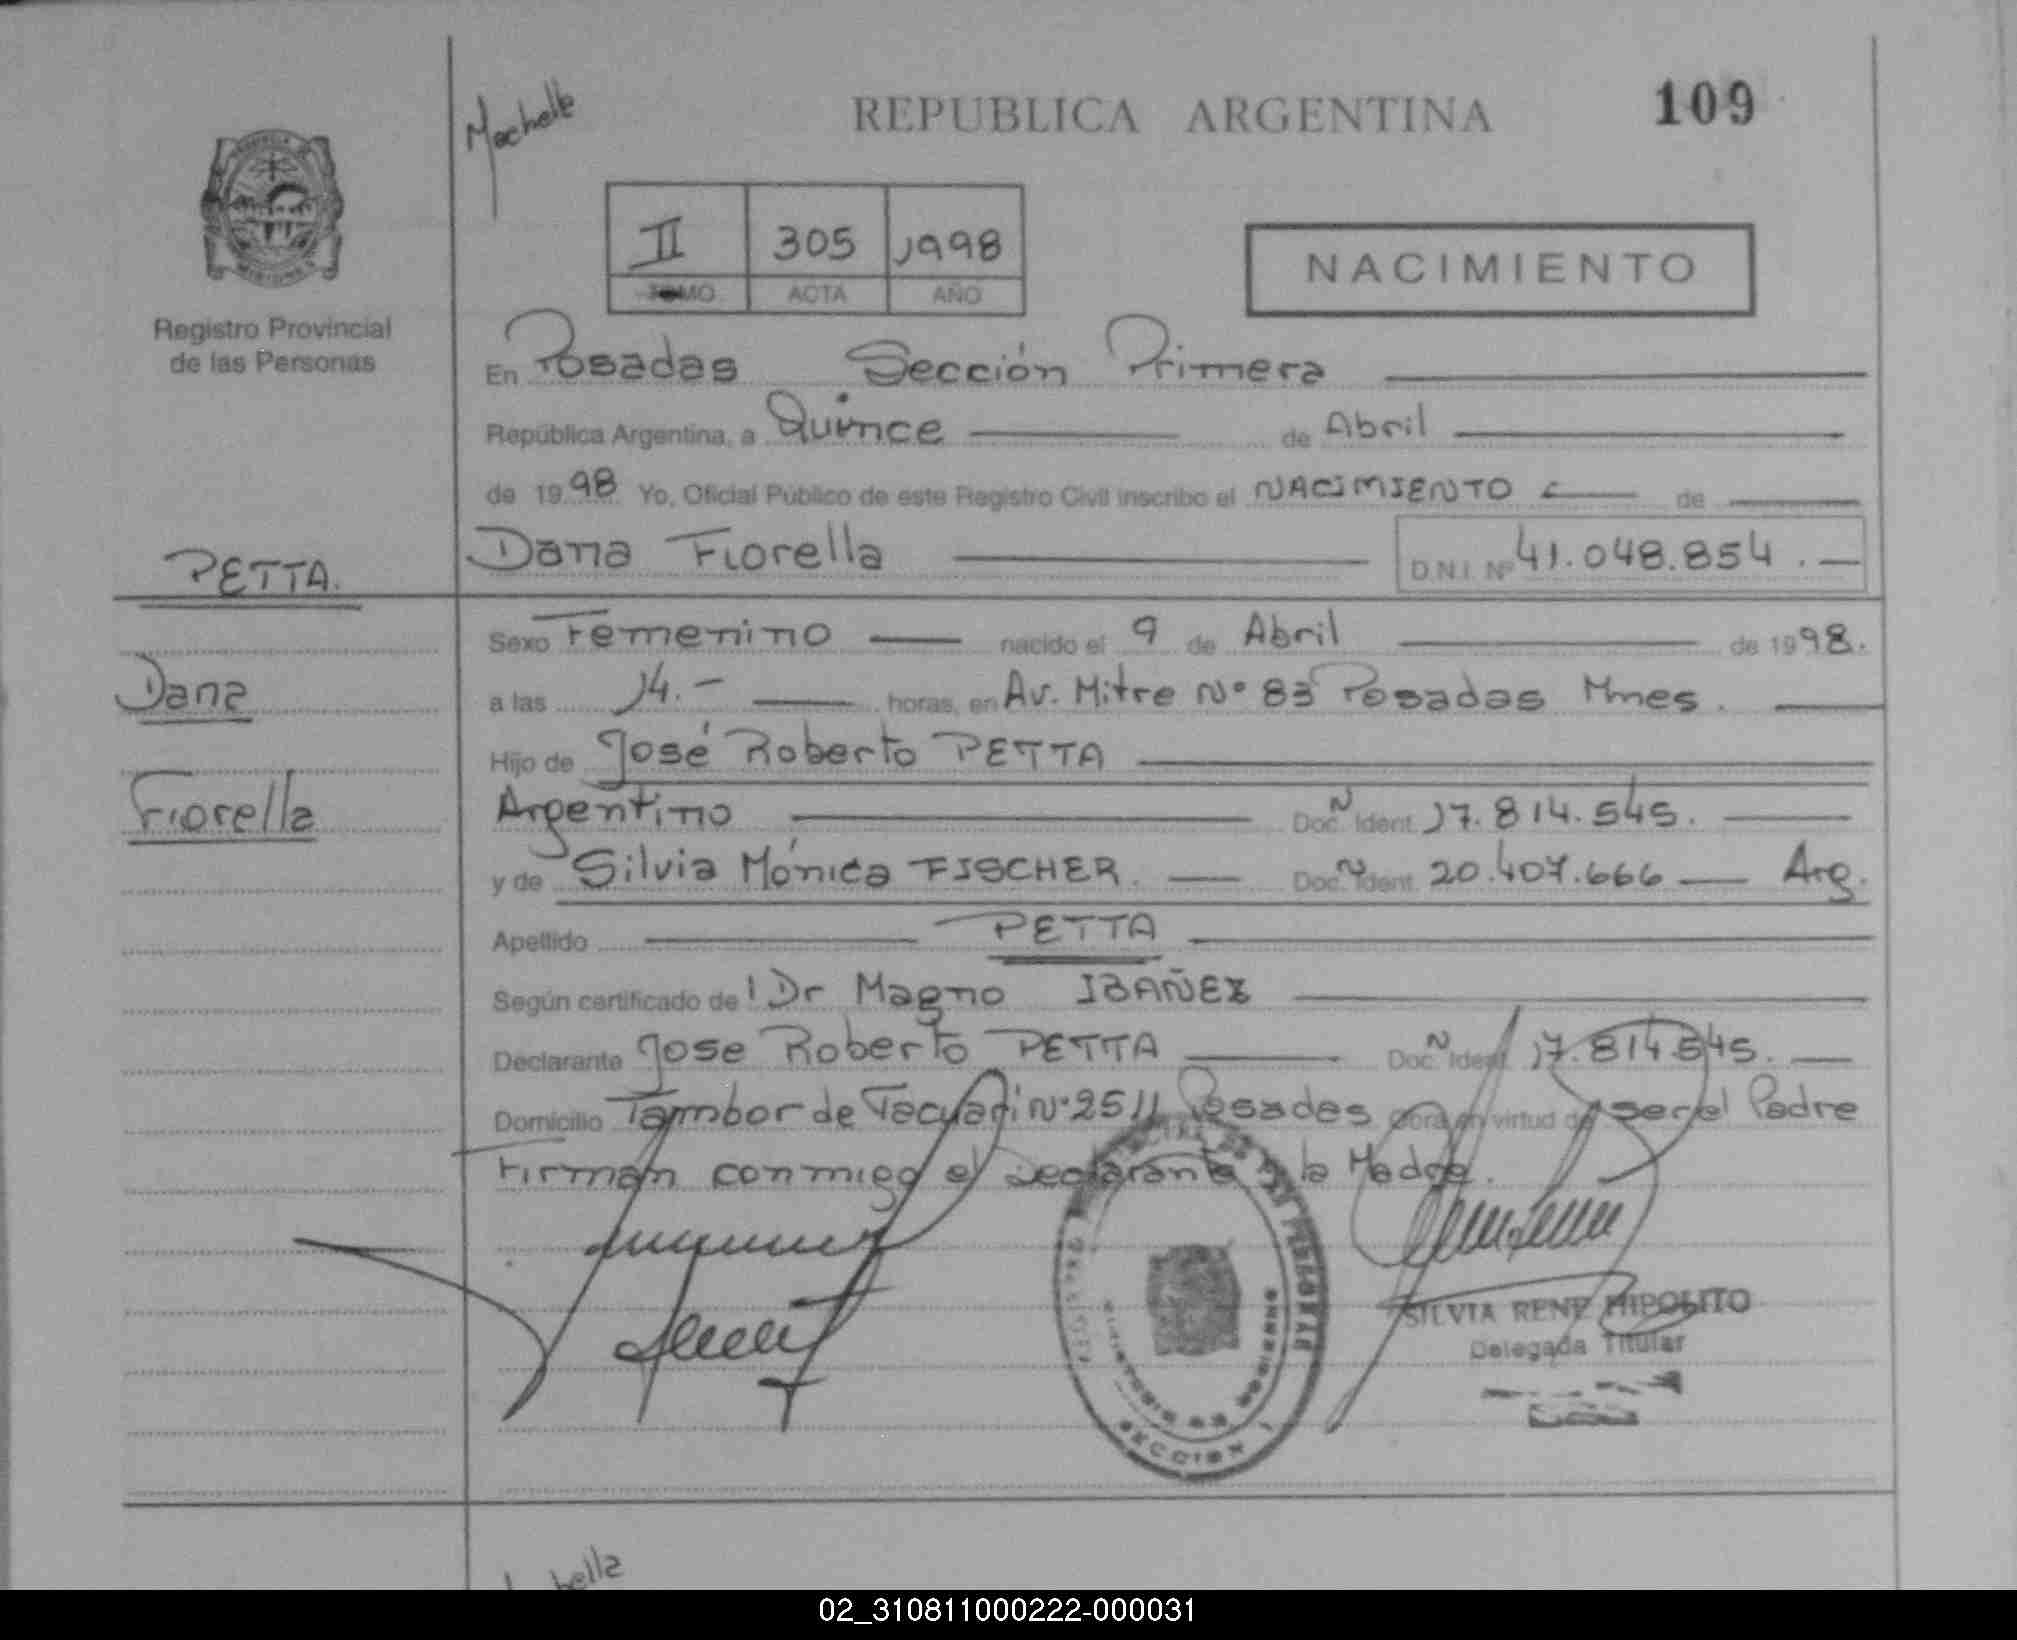 Machelle
REPUBLICA ARGENTINA
109
II 305 1998
TOMO ACTA AÑO
NACIMIENTO
Registro Provincial
de las Personas
En Posadas Sección Primera
República Argentina, a Quince de Abril
de 1998 Yo, Oficial Público de este Registro Civil inscribo el NACIMIENTO de
PETTA.
Dana Fiorella D.N.I. Nº 41.048.854.
Sexo Femenino nacido el 9 de Abril de 1998.
Dana
a las 14.- horas, en Av. Mitre Nº 83 Posadas Mnes.
Hijo de José Roberto PETTA
Fiorella
Argentino Doc. N Ident. 17.814.545.
y de Silvia Mónica FISCHER. Doc. N Ident. 20.407.666 Arg.
Apellido PETTA
Según certificado de Dr Magno IBAÑEZ
Declarante Jose Roberto PETTA Doc. N Ident. 17.814.545.
Domicilio Tambor de Tacuari Nº 2511 Posadas Obra en virtud de ser el Padre
Firman conmigo el Declarante la Madre.
SILVIA RENE HIPOLITO
Delegada Titular
SECCION 1
bella
02_310811000222-000031